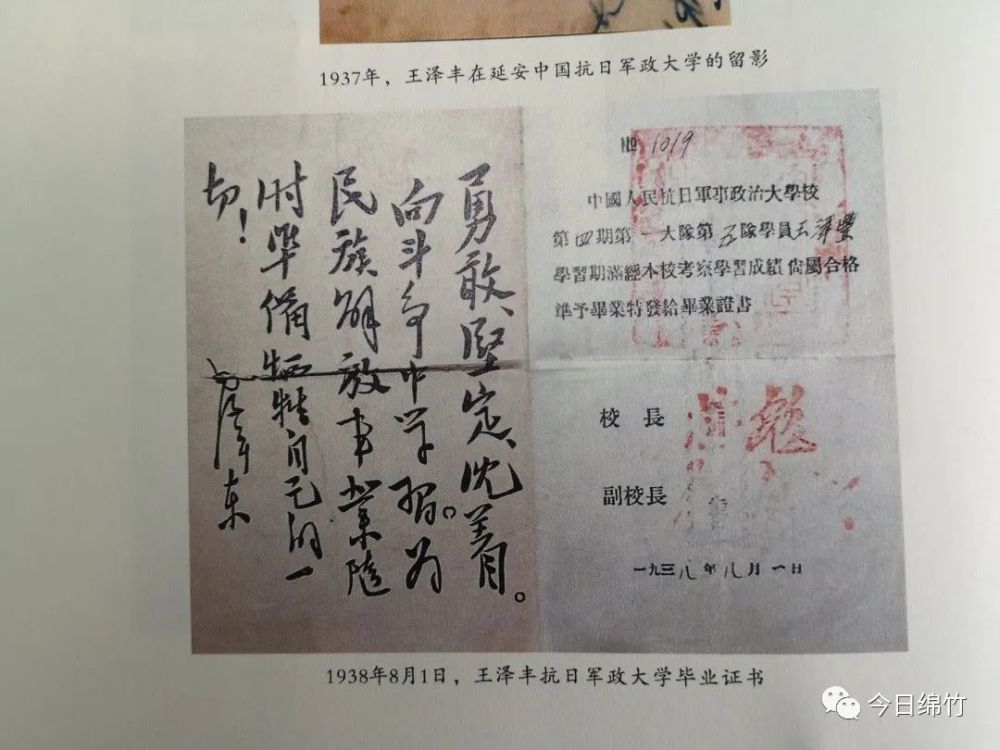 1937年，王泽丰在延安中国抗日军政大学的留影
勇敢、坚定、沈着。
向斗争中学习。为
民族解放事业随
时准备牺牲自己的一
切！
毛泽东
№ 1019
中國人民抗日軍事政治大學校
第四期第一大隊第五隊學員王澤豐
學習期滿經本校考察學習成績尚屬合格
準予畢業特發給畢業證書
校長
副校長
一九三八年八月一日
1938年8月1日，王泽丰抗日军政大学毕业证书
今日绵竹